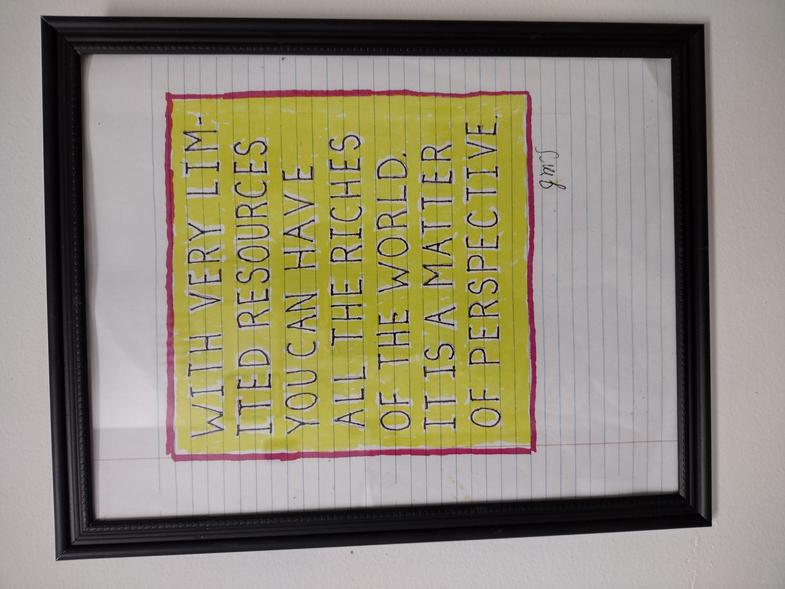 WITH VERY LIM-
ITED RESOURCES
YOU CAN HAVE
ALL THE RICHES
OF THE WORLD.
IT IS A MATTER
OF PERSPECTIVE.